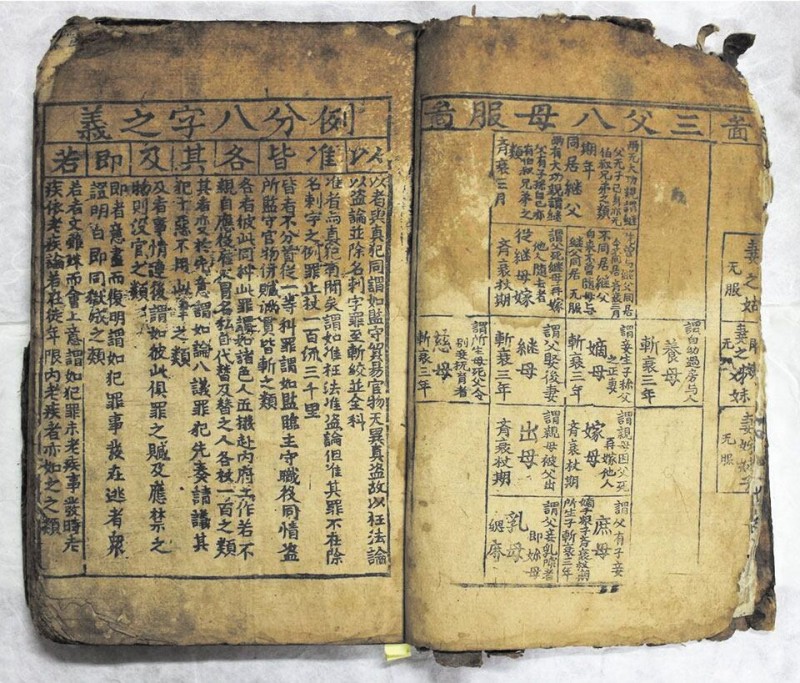 啚
妻之姑
无服
妻之姊妹
无服
三父八母服啚
同居繼父
期年
斉衰三月
謂父死繼母再嫁
他人隨去者
從繼母嫁
斉衰杖期
謂自幼過房与人
養母
斬衰三年
謂妾生子稱父
之正妻
嫡母
斬衰三年
謂父娶後妻
継母
斬衰三年
謂所生母死父令
別妾撫育者
慈母
斬衰三年
謂親母因父死
再嫁他人
嫁母
斉衰杖期
謂親母被父出
出母
斉衰杖期
謂父有子妾
庶母
所生子斬衰三年
謂父妾乳哺者
即奶母
乳母
緦麻
例分八字之義
以准皆各其及即若
以者與真犯同謂如監守貿易官物无異真盜故以枉法論
以盜論並除名刺字罪至斬絞並全科
准者與真犯有間矣謂如准枉法准盜論但准其罪不在除
名刺字之例罪止杖一百流三千里
皆者不分首從一等科罪謂如監臨主守職役同情盜
所監守官物併贓滿貫皆斬之類
各者彼此同科此罪謂如諸色人匠撥赴内府工作若不
親自應役雇人冒名私自代替及替之人各杖一百之類
其者変於先意謂如論八議罪犯先奏請議其
犯十惡不用此律之類
及者事情連後謂如彼此俱罪之贓及應禁之
物則沒官之類
即者意盡而復明謂如犯罪事發在逃者衆
證明白即同獄成之類
若者文雖殊而會上意謂如犯罪未老疾事發時老
疾依老疾論若在徒年限内老疾者亦如之之類